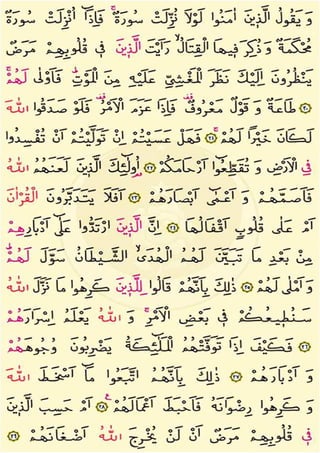 وَ يَقُولُ الَّذِينَ اٰمَنُوا لَوْلَا نُزِّلَتْ سُورَةٌ ۖ فَاِذَا اُنْزِلَتْ سُورَةٌ
مُحْكَمَةٌ وَ ذُكِرَ فِيهَا الْقِتَالُ ۙ رَاَيْتَ الَّذِينَ فِي قُلُوبِهِمْ مَرَضٌ
يَنْظُرُونَ اِلَيْكَ نَظَرَ الْمَغْشِيِّ عَلَيْهِ مِنَ الْمَوْتِ ۖ فَاَوْلٰى لَهُمْ ۚ
٢٠ طَاعَةٌ وَ قَوْلٌ مَعْرُوفٌ ۚ فَاِذَا عَزَمَ الْاَمْرُ ۖ فَلَوْ صَدَقُوا اللّٰهَ
لَكَانَ خَيْرًا لَهُمْ ۚ ٢١ فَهَلْ عَسَيْتُمْ اِنْ تَوَلَّيْتُمْ اَنْ تُفْسِدُوا
فِي الْاَرْضِ وَ تُقَطِّعُوا اَرْحَامَكُمْ ٢٢ اُولٰئِكَ الَّذِينَ لَعَنَهُمُ اللّٰهُ
فَاَصَمَّهُمْ وَ اَعْمٰى اَبْصَارَهُمْ ٢٣ اَفَلَا يَتَدَبَّرُونَ الْقُرْاٰنَ
اَمْ عَلٰى قُلُوبٍ اَقْفَالُهَا ٢٤ اِنَّ الَّذِينَ ارْتَدُّوا عَلٰى اَدْبَارِهِمْ
مِنْ بَعْدِ مَا تَبَيَّنَ لَهُمُ الْهُدَى ۙ الشَّيْطَانُ سَوَّلَ لَهُمْ ۖ
وَ اَمْلٰى لَهُمْ ٢٥ ذٰلِكَ بِاَنَّهُمْ قَالُوا لِلَّذِينَ كَرِهُوا مَا نَزَّلَ اللّٰهُ
سَنُطِيعُكُمْ فِي بَعْضِ الْاَمْرِ ۚ وَ اللّٰهُ يَعْلَمُ اِسْرَارَهُمْ
٢٦ فَكَيْفَ اِذَا تَوَفَّتْهُمُ الْمَلٰئِكَةُ يَضْرِبُونَ وُجُوهَهُمْ
وَ اَدْبَارَهُمْ ٢٧ ذٰلِكَ بِاَنَّهُمُ اتَّبَعُوا مَا اَسْخَطَ اللّٰهَ
وَ كَرِهُوا رِضْوَانَهُ فَاَحْبَطَ اَعْمَالَهُمْ ۚ ٢٨ اَمْ حَسِبَ الَّذِينَ
فِي قُلُوبِهِمْ مَرَضٌ اَنْ لَنْ يُخْرِجَ اللّٰهُ اَضْغَانَهُمْ ٢٩